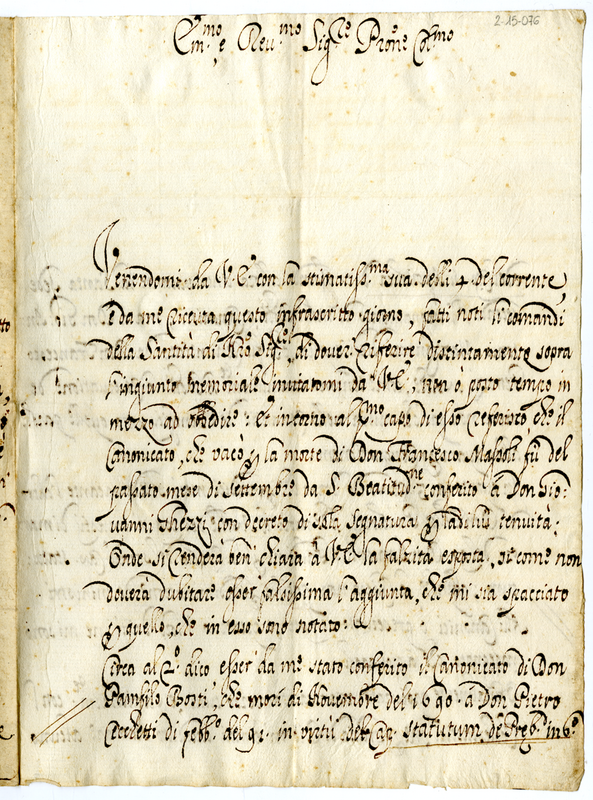 2-15-076
Em.mo e Reu.mo Sig.re Prone Col.mo
Venendomi da V.E. con la stimatiss.ma sua delli 4 del corrente,
e da me riceuta questo infrascritto giorno, fatti noti li comandi
della Santità di Nro Sig.re, di douer riferire distintamente sopra
l'ingiunto memoriale inuiatomi da V.E., non ò posto tempo in
mezzo ad obbedire: Et intorno al p.mo capo di esso referisco, che il
Canonicato, che vacò p la morte di Don Francesco Massoli fù del
passato mese di Settembre da S. Beatitud.ne conferito à Don Gio:
uanni Ghezzi, con decreto di sola segnatura p la di lui tenuità;
Onde si renderà ben chiara à V.E. la falzità esposta, si come non
douerà dubitare esser falsissima l'aggiunta, che mi sia spacciato
p quello, che in esso sono notato:
Circa al 2.o dico esser da me stato conferito il Canonicato di Don
Panfilo Bosti, che morì di Nouembre del 1690. à Don Pietro
Cecchetti di febb.o del 91. in virtù del Cap. statutum de Preb. in 6.o